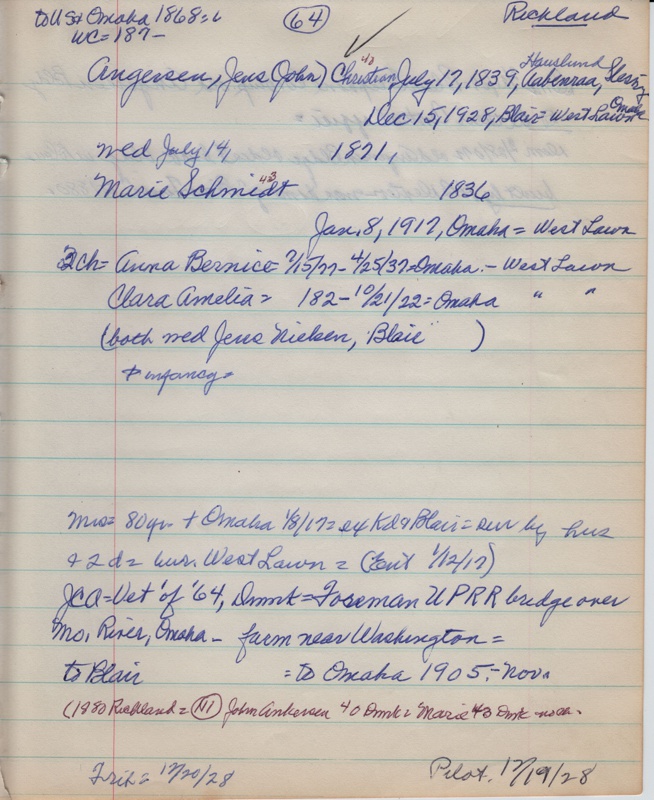 to US + Omaha 1868=
WC=187-
64
Rickland
Angersen, Jens (John) Christian July 17, 1839, Aabenraa,
40
Dec 15, 1928, Blair= West Lawn
Omaha
wed July 14, 1871
Marie Schmidt 1836
43
Jan. 8, 1917, Omaha = West Lawn
2ch= Anna Bernice= 7/15/77- 4/25/37=Omaha - West Lawn
Clara Amelia = 182- 10/21/22= Omaha " "
(both wed Jens Nielsen, Blair )
+ infancy=
Mrs= 80 yr. + Omaha 1/8/17= Blair= sur by hus
+ 2 d= bur. West Lawn = (Ent 1/12/17)
JCA=Vet of '64, Dnmk=Foreman UPRR bridge over
Mo. River, Omaha - farm near Washington =
to Blair = to Omaha 1905,- Nov.
(1880 Richland = 111 John Ankersen 40 Dnmk= Marie 43 Dnk - no ch.
12/20/28
Pilot. 12/19/28